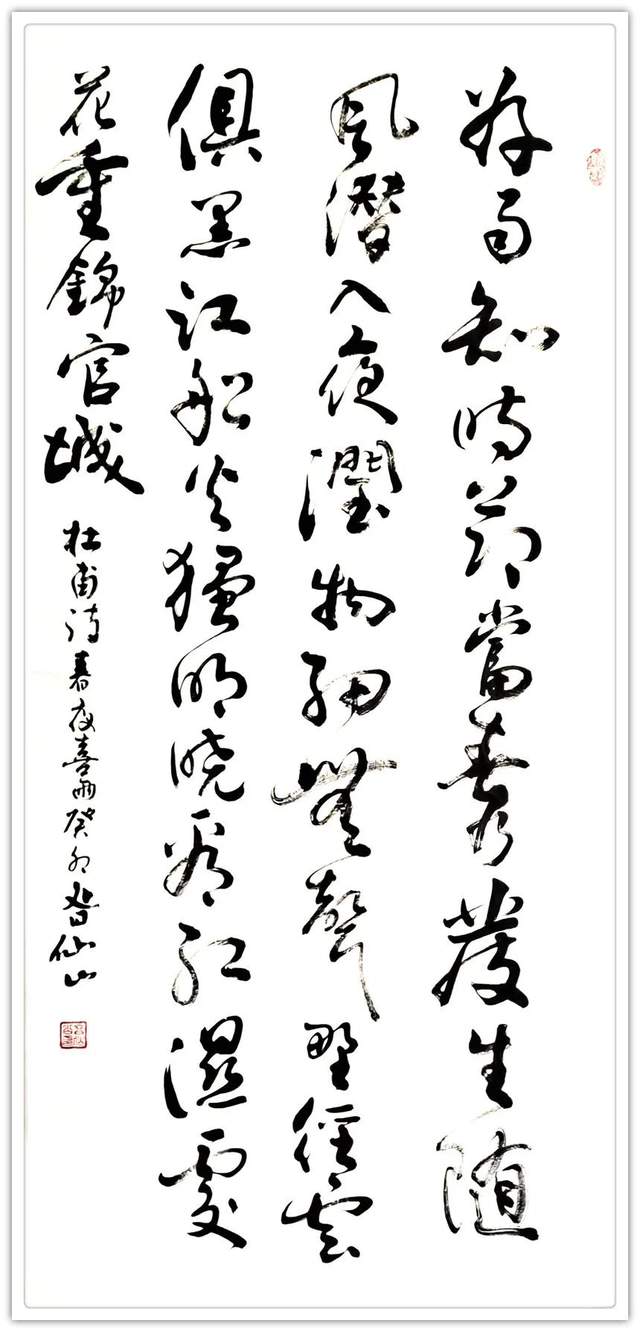 好雨知時節當春乃發生随
風潛入夜潤物細無聲野徑雲
俱黑江船火獨明曉看紅濕處
花重錦官城 杜甫詩春夜喜雨癸卯昝仙山